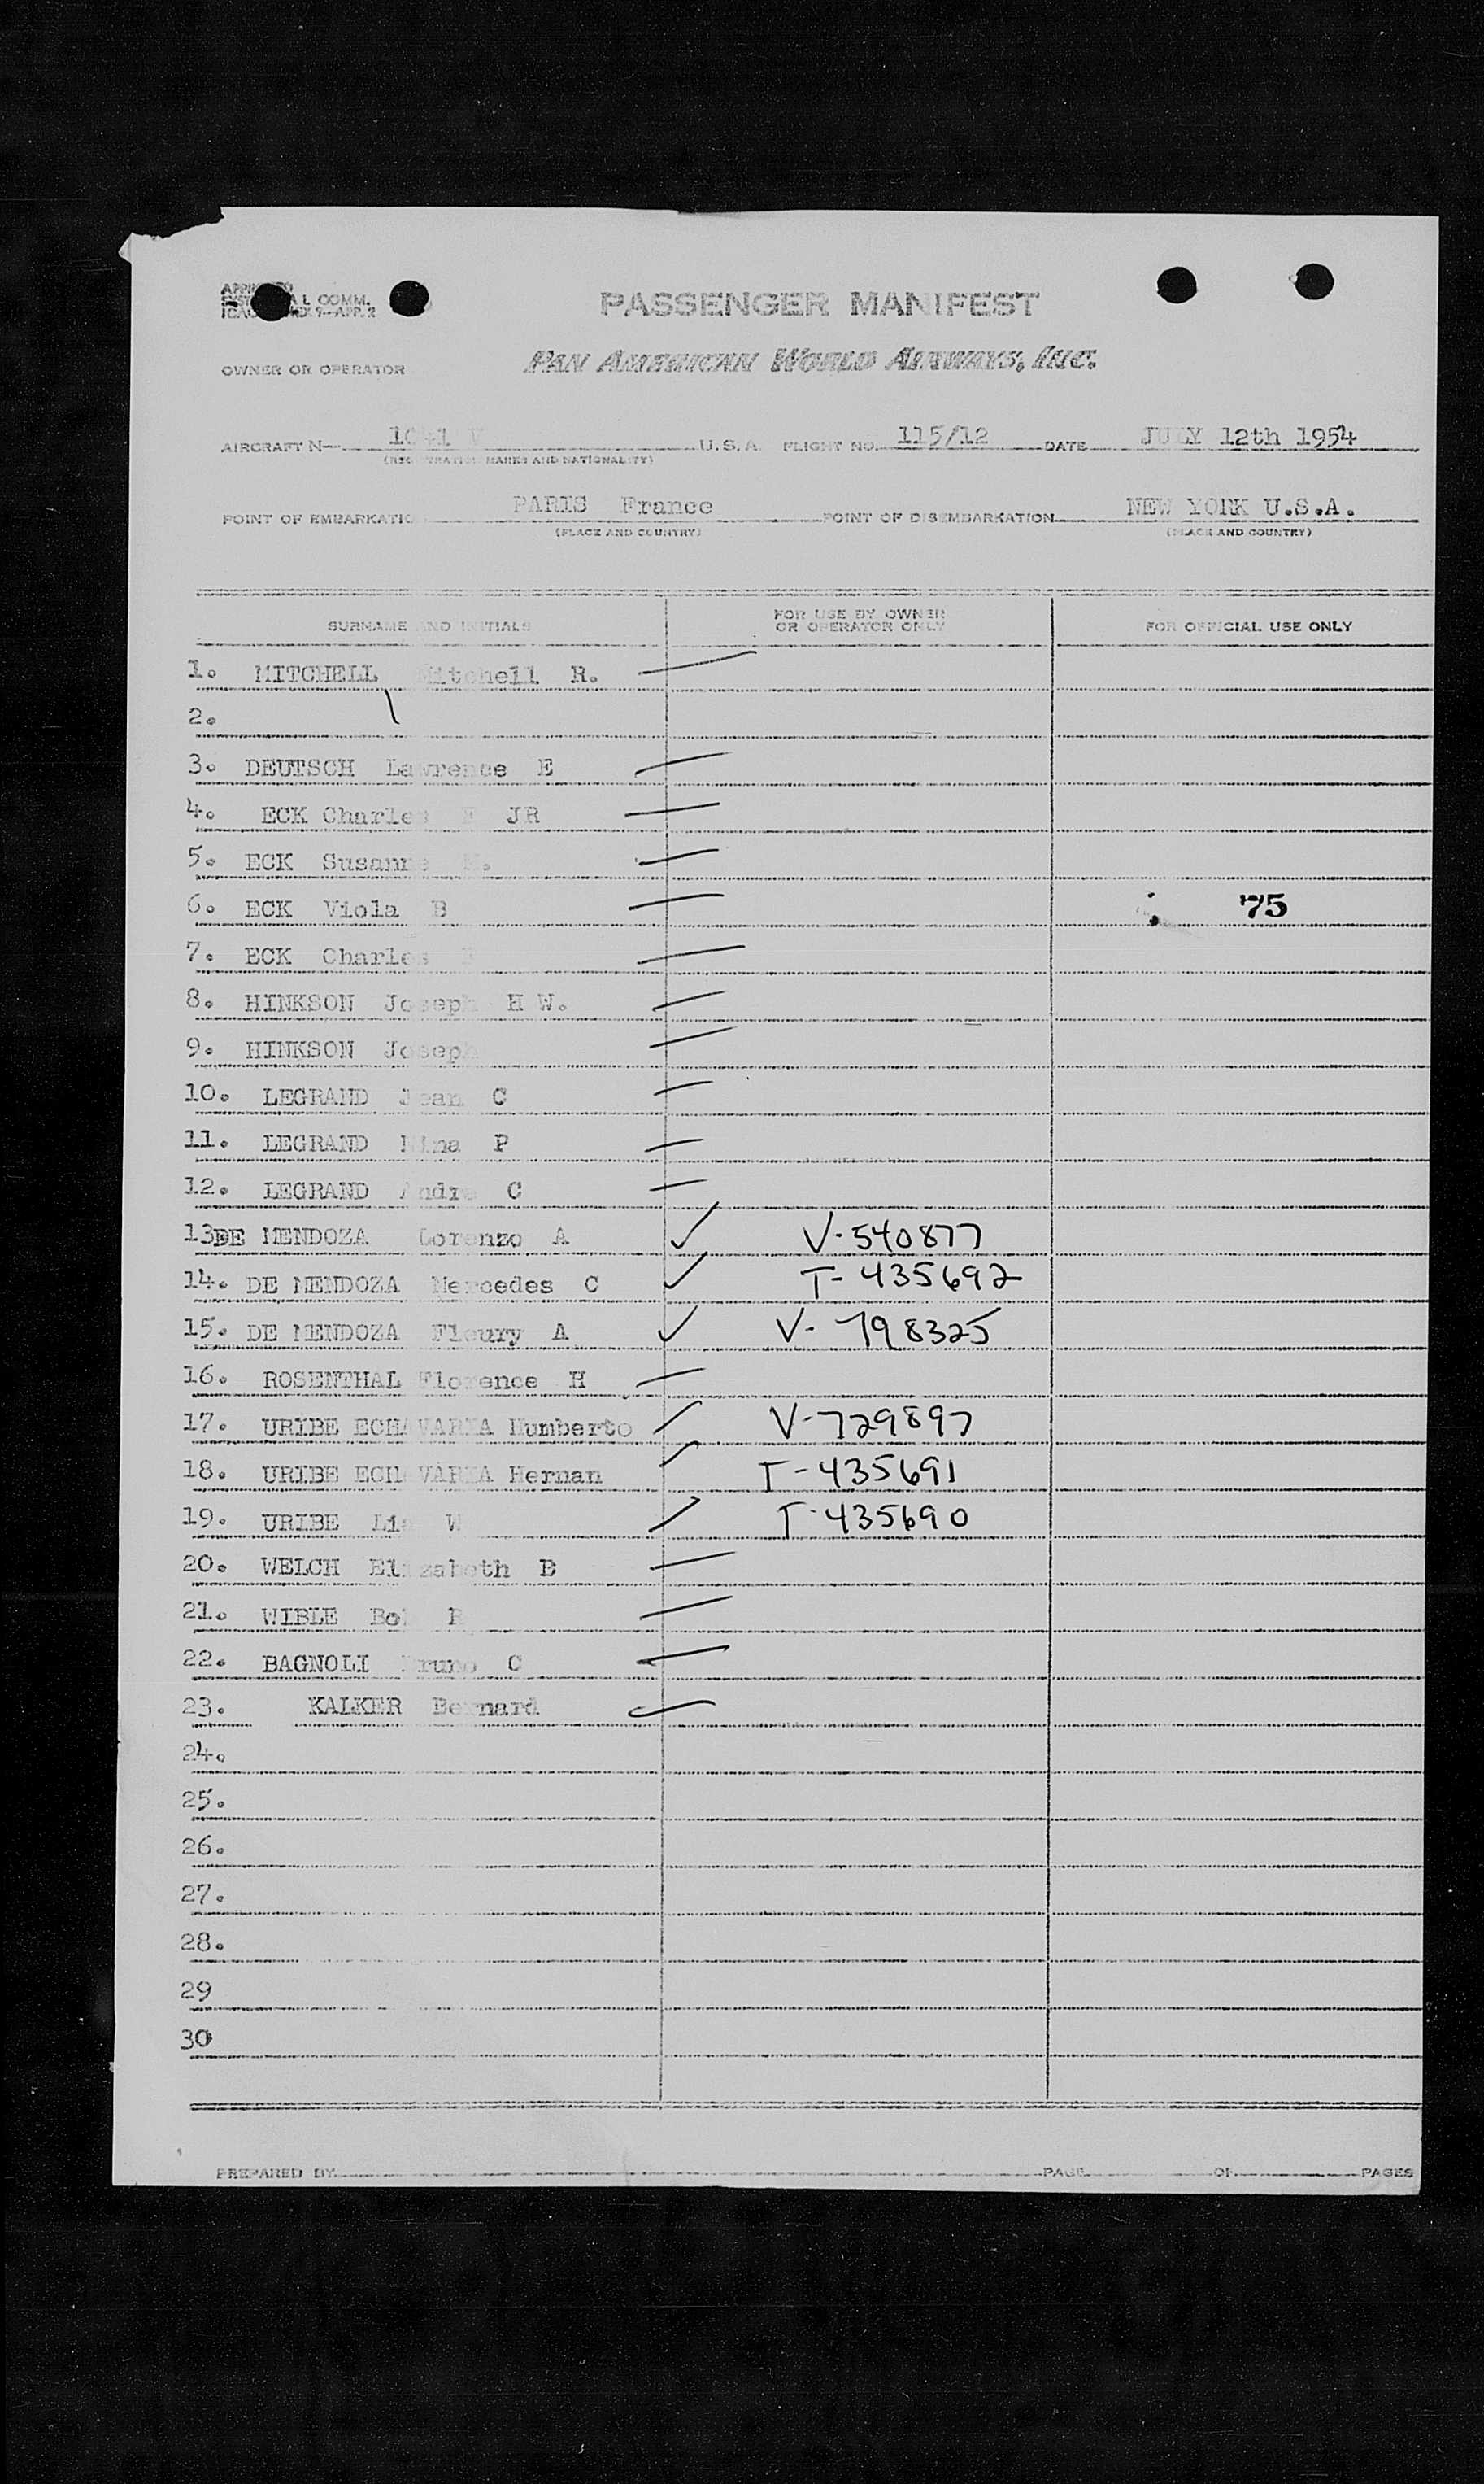 PASSENGER MANIFEST
L COMM.
9-APP. 2
OWNER OR OPERATOR
PAN AMERICAN WORLD AIRWAYS, INC.
AIRCRAFT N- U.S.A. FLIGHT NO. 115/12 DATE JULY 12th 1954
(REGISTRATION MARKS AND NATIONALITY)
POINT OF EMBARKATIO PARIS France POINT OF DISEMBARKATION NEW YORK U.S.A.
(PLACE AND COUNTRY) (PLACE AND COUNTRY)
SURNAME AND INITIALS
FOR USE BY OWNER
OR OPERATOR ONLY
FOR OFFICIAL USE ONLY
1. MITCHELL Mitchell R.
2.
3. DEUTSCH Lawrence E
4. ECK Charles JR
5. ECK Susanne
6. ECK Viola B 75
7. ECK Charles
8. HINKSON Joseph H W.
9. HINKSON Joseph
10. LEGRAND Jean C
11. LEGRAND P
12. LEGRAND Andre C
13 DE MENDOZA Lorenzo A V-540877
14. DE MENDOZA Mercedes C T-435692
15. DE MENDOZA Fleury A V-798325
16. ROSENTHAL Florence H
17. URIBE ECHAVARIA Humberto V-729897
18. URIBE ECHAVARIA Hernan T-435691
19. URIBE W T-435690
20. WELCH Elizabeth B
21. WIBLE
22. BAGNOLI Bruno C
23. KALKER Bernard
24.
25.
26.
27.
28.
29
30
PREPARED BY PAGE OF PAGES